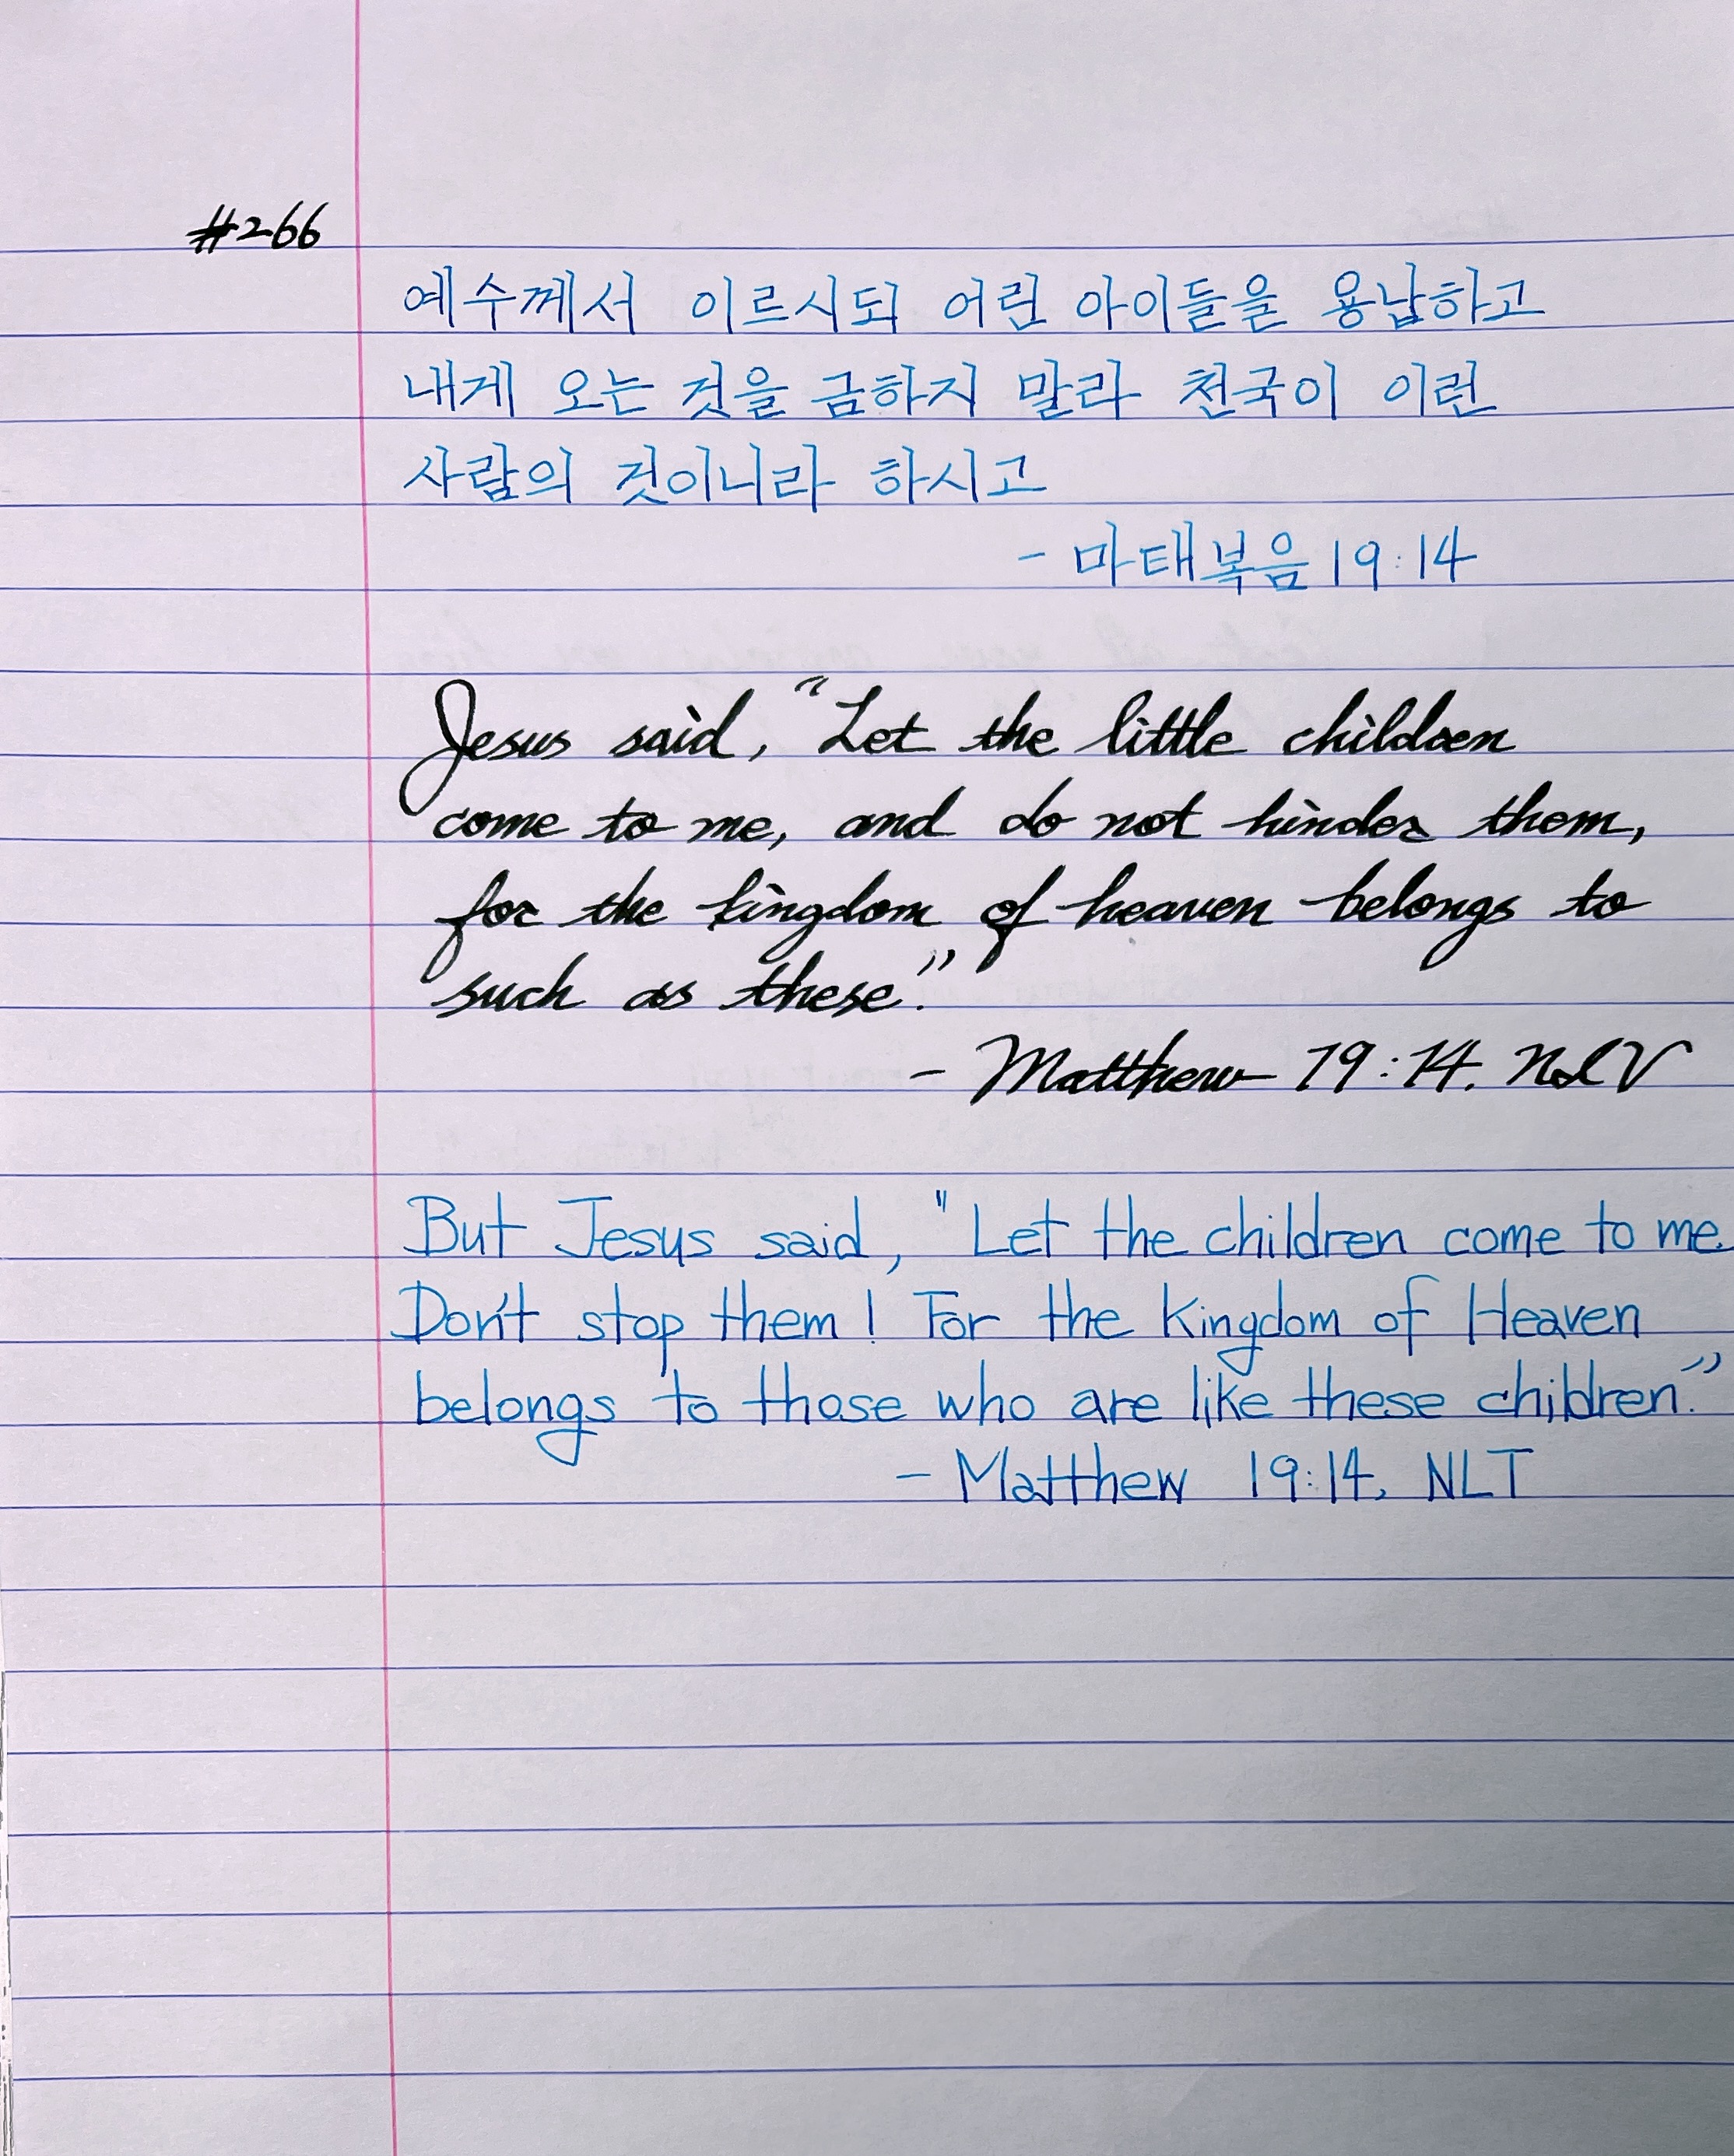 #266
예수께서 이르시되 어린 아이들을 용납하고
내게 오는 것을 금하지 말라 천국이 이런
사람의 것이니라 하시고
- 마태복음 19:14
Jesus said, “Let the little children
come to me, and do not hinder them,
for the kingdom of heaven belongs to
such as these.”
- Matthew 19:14. NIV
But Jesus said, "Let the children come to me.
Don't stop them! For the Kingdom of Heaven
belongs to those who are like these children.”
- Matthew 19:14, NLT